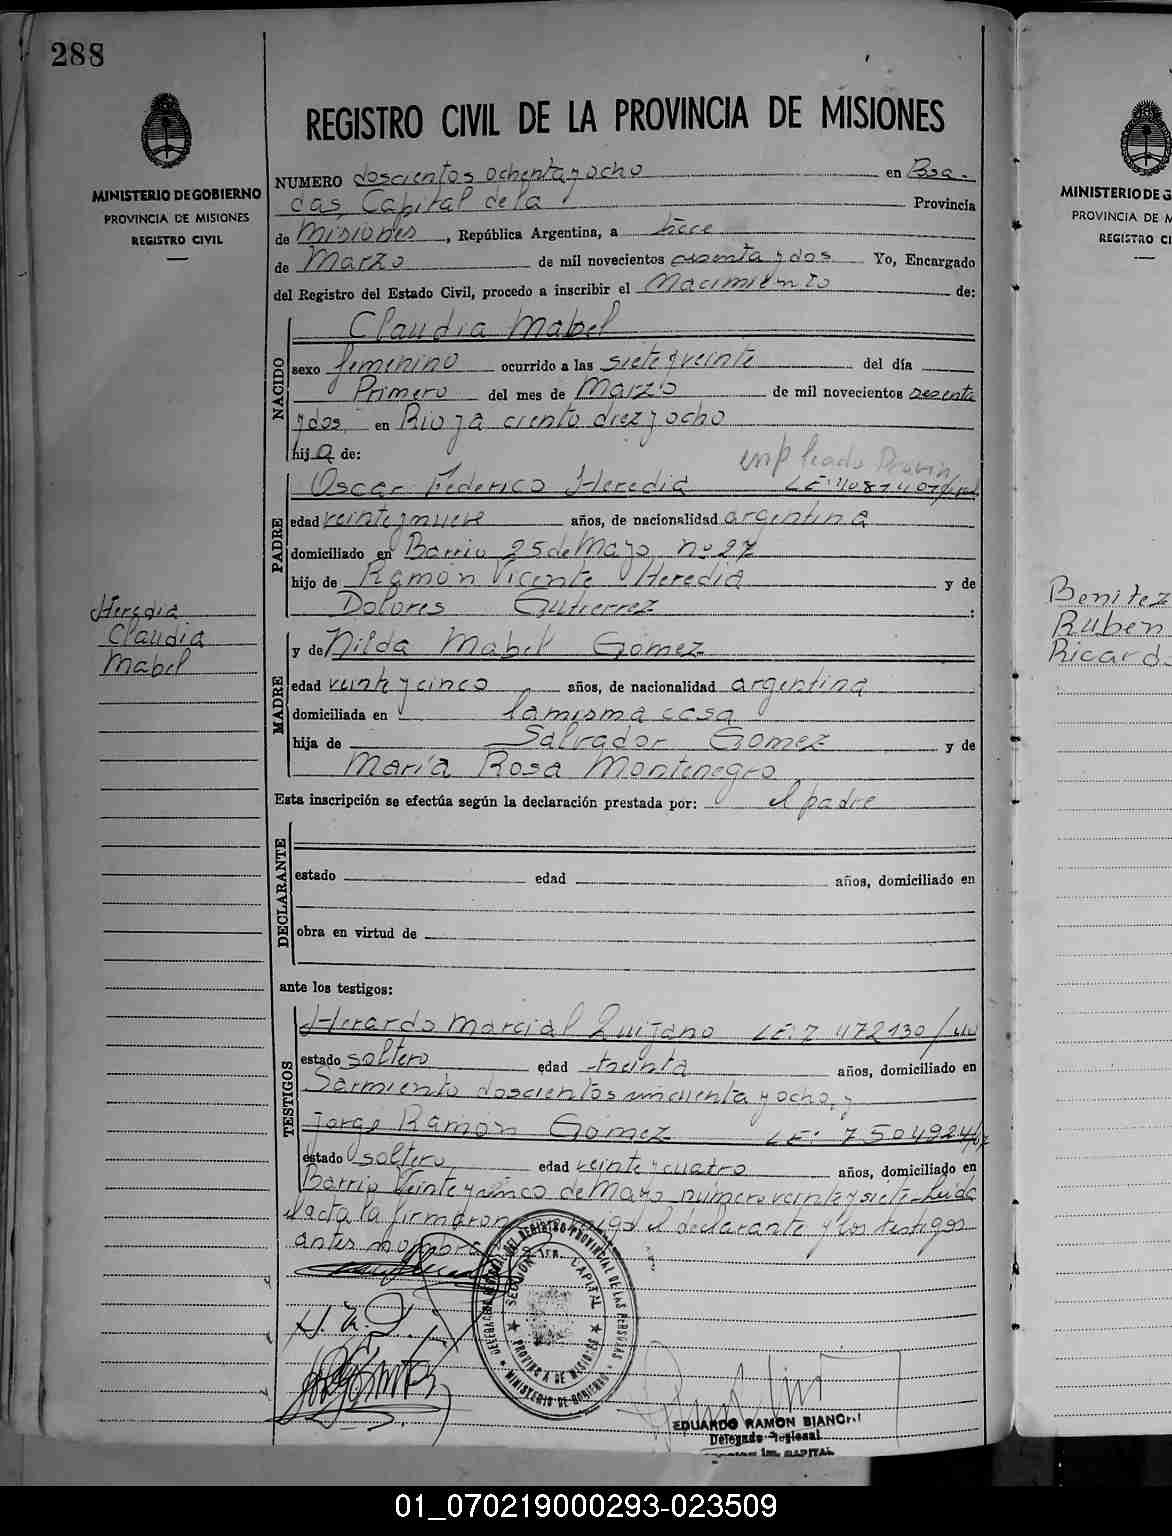 288
MINISTERIO DE GOBIERNO
PROVINCIA DE MISIONES
REGISTRO CIVIL
REGISTRO CIVIL DE LA PROVINCIA DE MISIONES
NUMERO doscientos ochenta y ocho en Posa-
das, Capital de la Provincia
de Misiones, República Argentina, a trece
de Marzo de mil novecientos sesenta y dos Yo, Encargado
del Registro del Estado Civil, procedo a inscribir el Nacimiento de:
NACIDO
Claudia Mabel
sexo femenino ocurrido a las siete y veinte del día
Primero del mes de Marzo de mil novecientos sesenta
y dos en Rioja ciento diez y ocho
hija de:
empleado Provin
PADRE
Oscar Federico Heredia
edad veinte y nueve años, de nacionalidad argentina
domiciliado en Barrio 25 de Mayo no 27
hijo de Ramón Vicente Heredia y de
Dolores Gutierrez :
Heredia
Claudia
Mabel
MADRE
y de Nilda Mabel Gómez
edad veinte y cinco años, de nacionalidad argentina
domiciliada en la misma casa
hija de Salvador Gomez y de
María Rosa Montenegro
Esta inscripción se efectúa según la declaración prestada por: el padre
DECLARANTE
estado edad años, domiciliado en
obra en virtud de
ante los testigos:
TESTIGOS
Herardo Marcial Quijano LE:7 472130/
estado soltero edad treinta años, domiciliado en
Sarmiento doscientos cincuenta y ocho, y
Jorge Ramón Gómez LE: 7504924/
estado soltero edad veinte y cuatro años, domiciliado en
Barrio Veinte y cinco de Mayo número veinte y siete. Leida
el acta la firmaron el declarante y los testigos
antes nombra
DELEGACION GENERAL DEL REGISTRO PROVINCIAL DE LAS PERSONAS
SECCION 1ra. CAPITAL
PROVINCIA DE MISIONES
MINISTERIO DE GOBIERNO
EDUARDO RAMON BIANCHI
Delegado Regional
CAPITAL
MINISTERIO DE G
PROVINCIA DE M
REGISTRO CI
Benitez
Ruben
Ricardo
01_070219000293-023509